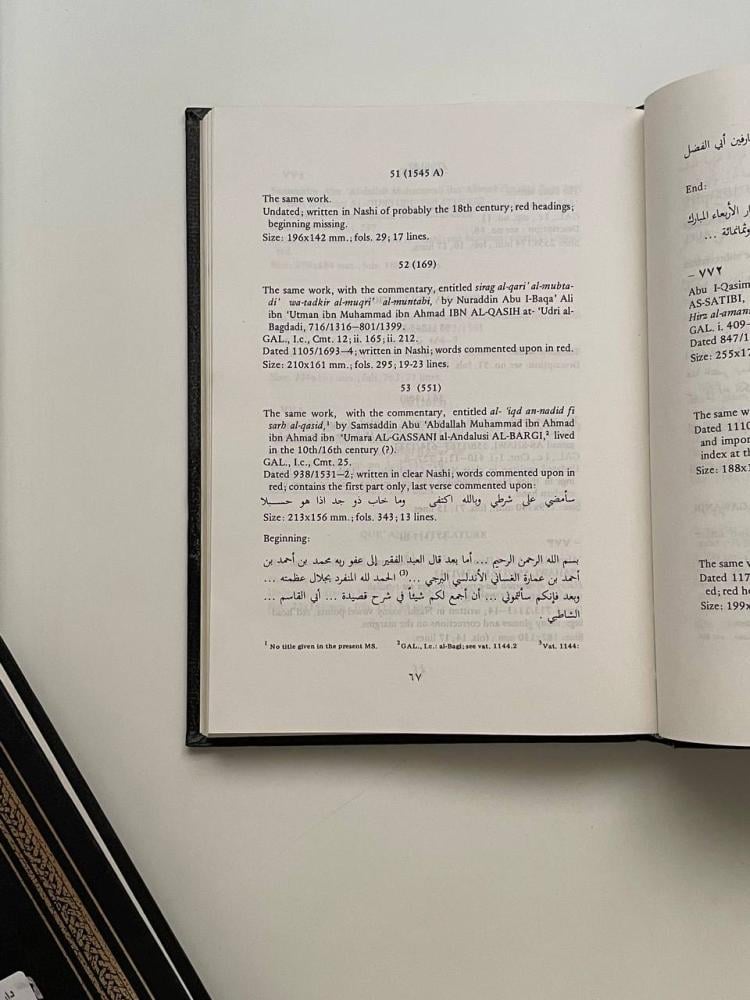 51 (1545 A)
The same work.
Undated; written in Nashi of probably the 18th century; red headings;
beginning missing.
Size: 196x142 mm.; fols. 29; 17 lines.
52 (169)
The same work, with the commentary, entitled sirag al-qari' al-mubta-
di' wa-tadkir al-muqri' al-muntabi, by Nuraddin Abu I-Baqa' Ali
ibn 'Utman ibn Muhammad ibn Ahmad IBN AL-QASIH at- 'Udri al-
Bagdadi, 716/1316—801/1399.
GAL., I.c., Cmt. 12; ii. 165; ii. 212.
Dated 1105/1693—4; written in Nashi; words commented upon in red.
Size: 210x161 mm.; fols. 295; 19-23 lines.
53 (551)
The same work, with the commentary, entitled al- 'iqd an-nadid fi
sarh al-qasid,¹ by Samsaddin Abu 'Abdallah Muhammad ibn Ahmad
ibn Ahmad ibn 'Umara AL-GASSANI al-Andalusi AL-BARGI,² lived
in the 10th/16th century (?).
GAL., I.c., Cmt. 25.
Dated 938/1531—2; written in clear Nashi; words commented upon in
red; contains the first part only, last verse commented upon:
سأمضي على شرطي وبالله اكتفى وما خاب ذو جد اذا هو حسبلا
Size: 213x156 mm.; fols. 343; 13 lines.
Beginning:
بسم الله الرحمن الرحيم ... أما بعد قال العبد الفقير إلى عفو ربه محمد بن أحمد بن
أحمد بن عمارة الغساني الأندلسي البرجي ...(3) الحمد لله المنفرد بجلال عظمته ...
وبعد فإنكم سألتموني ... أن أجمع لكم شيئاً في شرح قصيدة ... أبي القاسم ...
الشاطبي .
¹ No title given in the present MS. ²GAL., I.c.: al-Bagi; see vat. 1144.2 ³Vat. 1144:
٦٧
أبي الفضل
End:
الأربعاء المبارك
وثمانمائة ...
— ٧٧٢
Abu I-Qasim
AS-SATIBI,
Hirz al-aman
GAL. i. 409-
Dated 847/1
Size: 255x17
The same w
Dated 1110
and impor
index at th
Size: 188x1
The same v
Dated 117
ed; red he
Size: 199x